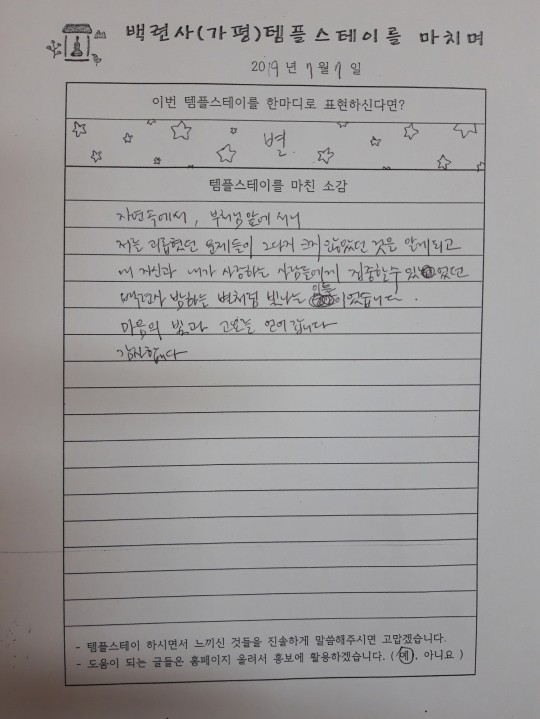 백련사(가평)템플스테이를 마치며
2019년 7월 7일
이번 템플스테이를 한마디로 표현하신다면?
별.
템플스테이를 마친 소감
자연속에서, 부처님앞에 서니
저를 괴롭혔던 문제들이 그다지 크지 않았었던 것을 알게되고
내 자신과 내가 사랑하는 사람들에게 집중할수 있었던
백련사 밤하늘 별처럼 빛나는 이틀이었습니다.
마음의 빛과 고요를 얻어갑니다
감사합니다
- 템플스테이 하시면서 느끼신 것들을 진솔하게 말씀해주시면 고맙겠습니다.
- 도움이 되는 글들은 홈페이지 올려서 홍보에 활용하겠습니다. ( 예, 아니요 )